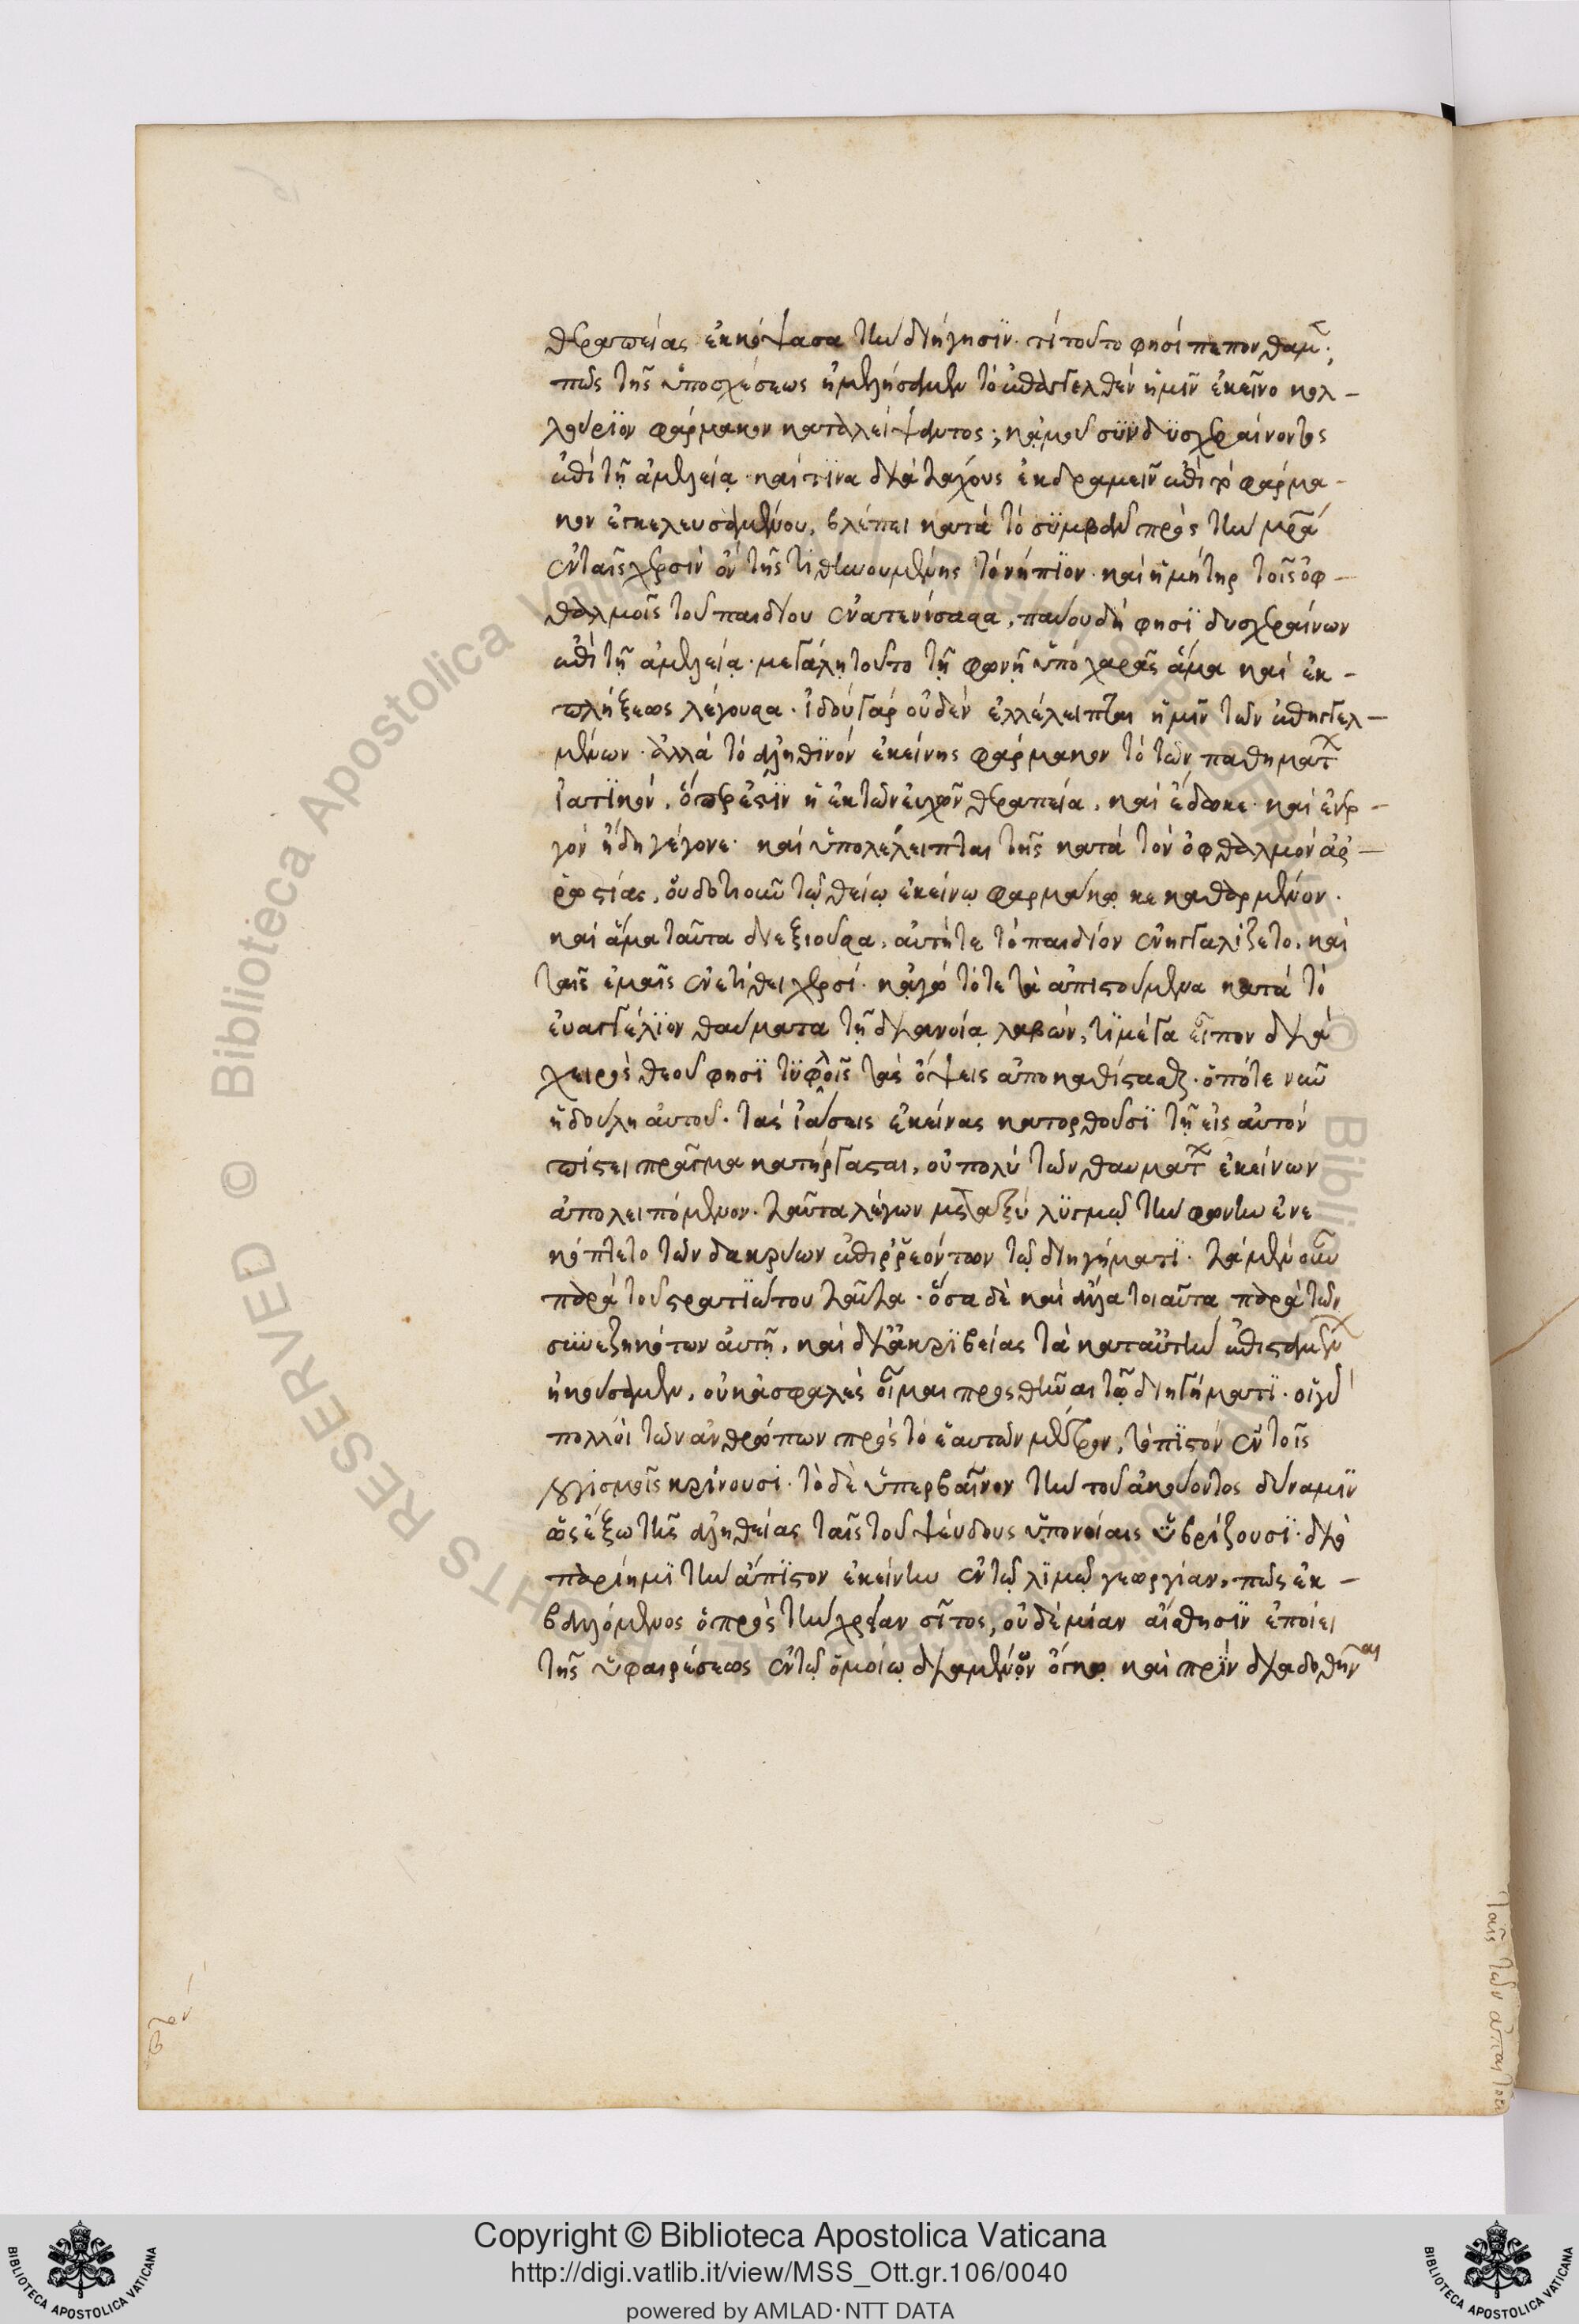 θεραπείας ἐκκόψασα τὴν διήγησϊν. τί τοῦτο φησί πεπόνθαμεν;
πῶς τῆς ὑποσχέσεως ἠμελήσαμεν τὸ ἐπαγγελθέν ἡμῖν ἐκεῖνο κολ-
λούριον φάρμακον καταλείψαντος; κἀμοῦ συνδϋσχεραίνοντος
ἐπὶ τῇ ἀμελείᾳ. καί τϊνα διὰ τάχους ἐκδραμεῖν ἐπὶ τὸ φάρμα-
κον ἐγκελευσαμένου, βλέπει κατὰ τὸ σϋμβὰν πρὸς τὴν μρᾱ
ἐν ταῖς χερσὶν ὂν τῆς τιθηνουμένης τὸ νήπϊον. καὶ ἡ μήτηρ τοῖς ὀφ-
θαλμοῖς τοῦ παιδίου ἐνατενίσασα, παύου δή φησϊ δυσχεραίνων
ἐπὶ τῇ ἀμελείᾳ. μεγάλῃ τοῦτο τῇ φωνῇ ὑπὸ χαρᾶς ἅμα καὶ ἐκ-
πλήξεως λέγουσα. ἰδοὺ γὰρ οὐδὲν ἐλλέλειπται ἡμῖν τῶν ἐπηγγελ-
μένων. ἀλλὰ τὸ ἀληθϊνόν ἐκείνης φάρμακον τὸ τῶν παθημάτ
ἰατϊκόν, ὅπερ ἐστὶν ἡ ἐκ τῶν εὐχῶν θεραπεία, καὶ ἔδωκε. καὶ ἐνερ-
γόν ἤδη γέγονε. καὶ ὑπολέλειπται τῆς κατὰ τὸν ὀφθαλμόν ἀρ-
ρωστίας, οὐδοτιοῦν τῷ θείῳ ἐκείνῳ φαρμάκῳ κεκαθαρμένον.
καὶ ἅμα ταῦτα διεξιοῦσα, αὐτήτε τὸ παιδίον ἐνηγκαλίζετο. καὶ
ταῖς ἐμαῖς ἐνετίθει χερσί. κἀγὼ τότε τὰ ἀπιστούμενα κατὰ τὸ
ἐυαγγέλϊον θαύματα τῇ διανοίᾳ λαβών, τί μέγα εἶπον διὰ
χειρὸς θεοῦ φησϊ τϋφλοῖς τὰς ὄψεις ἀποκαθίστασθαι. ὁπότε νῦν
ἡ δούλη αὐτοῦ. τὰς ἰάσεις ἐκείνας κατορθοῦσϊ τῇ εἰς αὐτόν
πίστει πρᾶγμα κατήργασται, οὐ πολὺ τῶν θαυμάτ ἐκείνων
ἀπολειπόμενον. ταῦτα λέγων μεταξύ λϋγμῷ τὴν φωνὴν ἐνε
κόπτετο τῶν δακρύων ἐπιρρεόντων τῷ διηγήματϊ. τὰ μὲν οὖν
παρὰ τοῦ στρατϊώτου ταῦτα. ὅσα δὲ καὶ ἄλλα τοιαῦτα παρὰ τῶν
σϋνεζηκότων αὐτῇ, καὶ δι' ἀκριβείας τὰ κατ' αὐτὴν ἐπισταμέν
ἠκούσαμεν, οὐκ ἀσφαλὲς οἶμαι προσθεῖναι τῷ διηγήματϊ. οἱ γὰρ
πολλοὶ τῶν ἀνθρώπων πρὸς τὸ ἑαυτῶν μέτρον, τὸ πϊστόν ἐν τοῖς
λογισμοῖς κρίνουσι. τὸ δὲ ὑπερβαῖνον τὴν τοῦ ἀκούοντος δύναμϊν
ὡς ἔξω τῆς ἀληθείας ταῖς τοῦ ψεύδους ὑπονοίαις ὑβρίζουσϊ. διὸ
παρίημϊ τὴν ἄπϊστον ἐκείνην ἐν τῷ λϊμῷ γεωργίαν, πῶς ἐκ-
βαλλόμενος ὁ πρὸς τὴν χρείαν σῖτος, οὐδὲ μίαν αἴσθησϊν ἐποίει
τῆς ὑφαιρέσεως ἐν τῷ ὁμοίῳ διαμένων ὄγκῳ καὶ πρϊν διαδοθῆναι